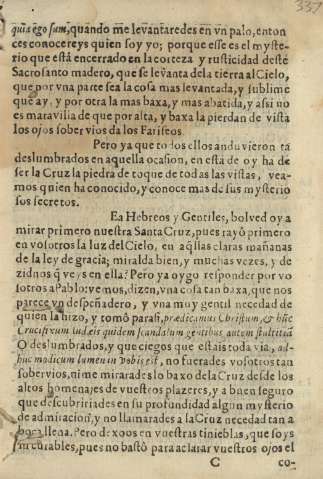 337
quia ego sum, quando me levantaredes en vn palo, enton
ces conocereys quien soy yo; porque esse es el myste-
rio que està encerrado en la corteza y rusticidad deste
Sacrosanto madero, que se levanta dela tierra al Cielo,
que por vna parte sea la cosa mas levantada, y sublime
que ay, y por otra la mas baxa, y mas abatida, y assi no
es maravilla de que por alta, y baxa la pierdan de vista
los ojos sobervios da los Fariseos.
Pero ya que todos ellos anduvieron tã
deslumbrados en aquella ocasion, en està de oy ha de
ser la Cruz la piedra de toque de todas las vistas, vea-
mos quien ha conocido, y conoce mas de sus mysterio
sus secretos.
Ea Hebreos y Gentiles, bolved oy a
mirar primero nuestra Santa Cruz, pues rayò primero
en vosotros la luz del Cielo, en aq̃llas claras mañanas
de la ley de gracia; miralda bien, y muchas vezes, y de
zidnos q̃ veys en ella? Pero ya oygo responder por vo
sotros a Pablo: vemos, dizen, vna cosa tan baxa, que nos
parece vn despeñadero, y vna muy gentil necedad de
quien la hizo, y tomò parassi, prædicamus Christum, & hũc
Crucifixum Iudæis quidem scandalum gentibus autem stultitiã
O deslumbrados, y que ciegos que estais toda via, ad-
huc modicum lumen in vobis est, no fuerades vosotros tan
sobervios, ni me mirarades lo baxo dela Cruz desde los
altos homenajes de vuestros plazeres, y a buen seguro
que descubririades en su profundidad algun mysterio
de admiracion, y no llamarades a la Cruz necedad tan a
boca llena. Pero dexoos en vuestras tinieblas, que soys
incurables, pues no bastò para aclarar vuestros ojos el
C co-